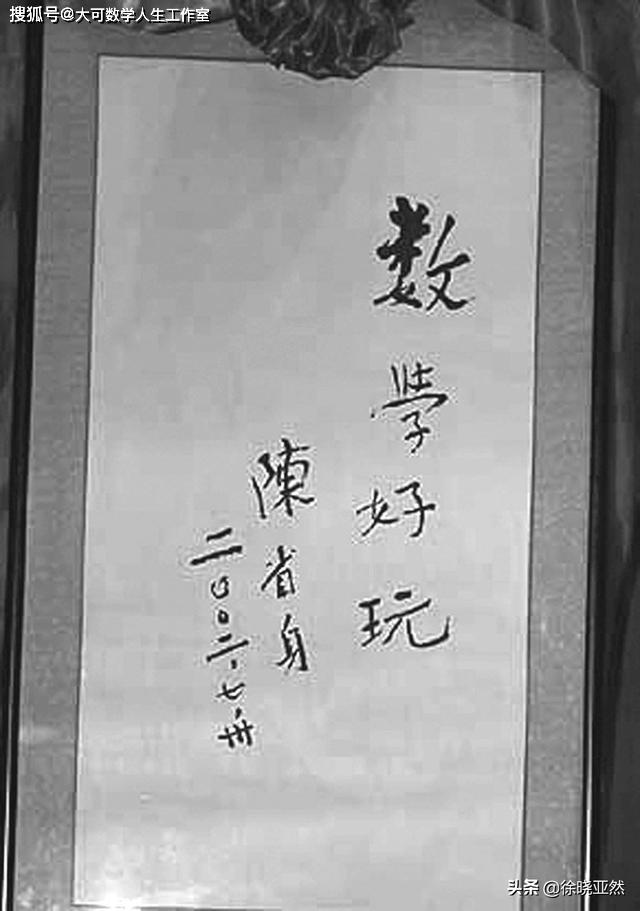 搜狐号@大可数学人生工作室
数学好玩
陳省身
二〇〇二.七.卅
头条 @徐晓亚然